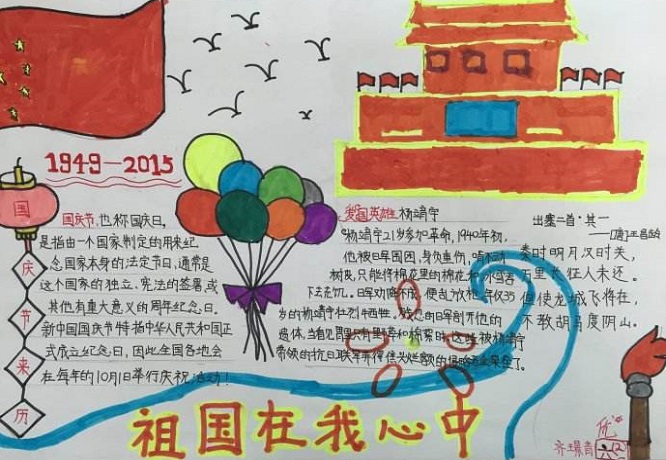 1949—2015
国庆节来历
国庆节,也称国庆日。
是指由一个国家制定的用来纪
念国家本身的法定节日,通常是
这个国家的独立、宪法的签署,或
其他有重大意义的周年纪念日。
新中国国庆节特指中华人民共和国正
式成立纪念日,因此全国各地会
在每年的10月1日举行庆祝活动!
爱国英雄杨靖宇
杨靖宇21岁参加革命,1940年初,
他被日军围困,身负重伤,啃不动
树皮,只能将棉花里的棉花和
下去充饥。日军劝降不成,便乱放枪 年仅35
岁的杨靖宇壮烈牺牲。残忍的日军剖开他的
遗体,当看见胃里只有
出塞二首·其一
——[唐]王昌龄
秦时明月汉时关,
万里长征人未还。
但使龙城飞将在,
不教胡马度阴山。
祖国在我心中
优